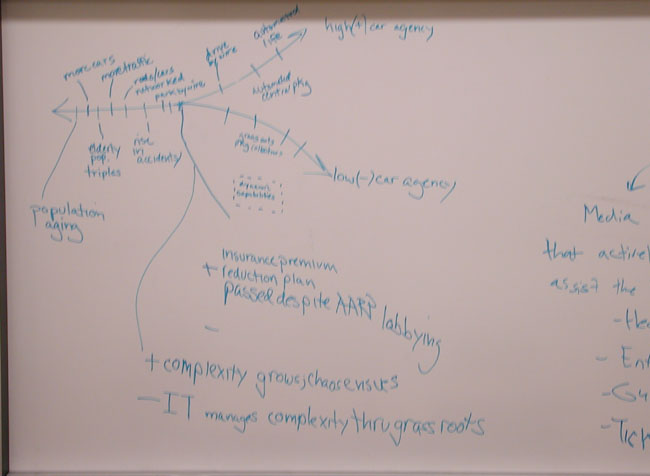 high(+) car agency
automated
life
drive
by wire
more cars
more traffic
roads/cars
networked
park by wire
automated
central pkg
elderly
pop.
triples
rise
in
accidents
grassroots
pkg
low(-) car agency
dynamic
capabilities
population
aging
insurance premium
+ reduction plan
passed despite AARP lobbying
-
+ complexity grows; chaos ensues
- IT manages complexity thru grass roots
Media
that activel
assist the
- Hea
- Ent
- Gu
- Tick